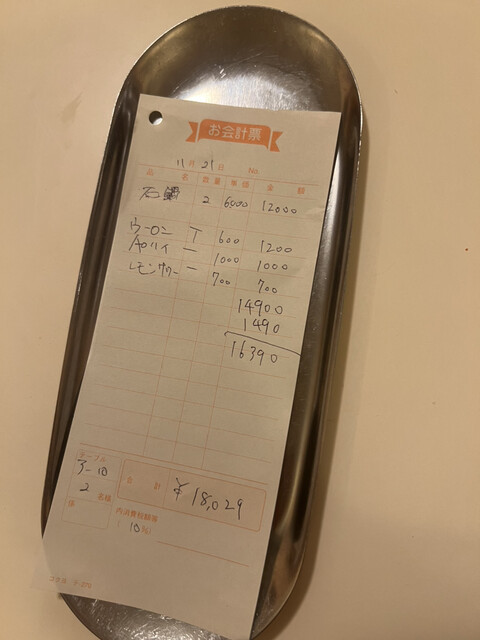 お会計票
11月 21日 No.
品 名 数量 単価 金 額
石鍋 2 6000 12000
ウーロン T 600 1200
1000 1000
レモンサワー 一 700 700
14900
1490
16390
テーブル
ア-10
2 名様
係
合 計 ¥18,029
内消費税額等
( 10%)